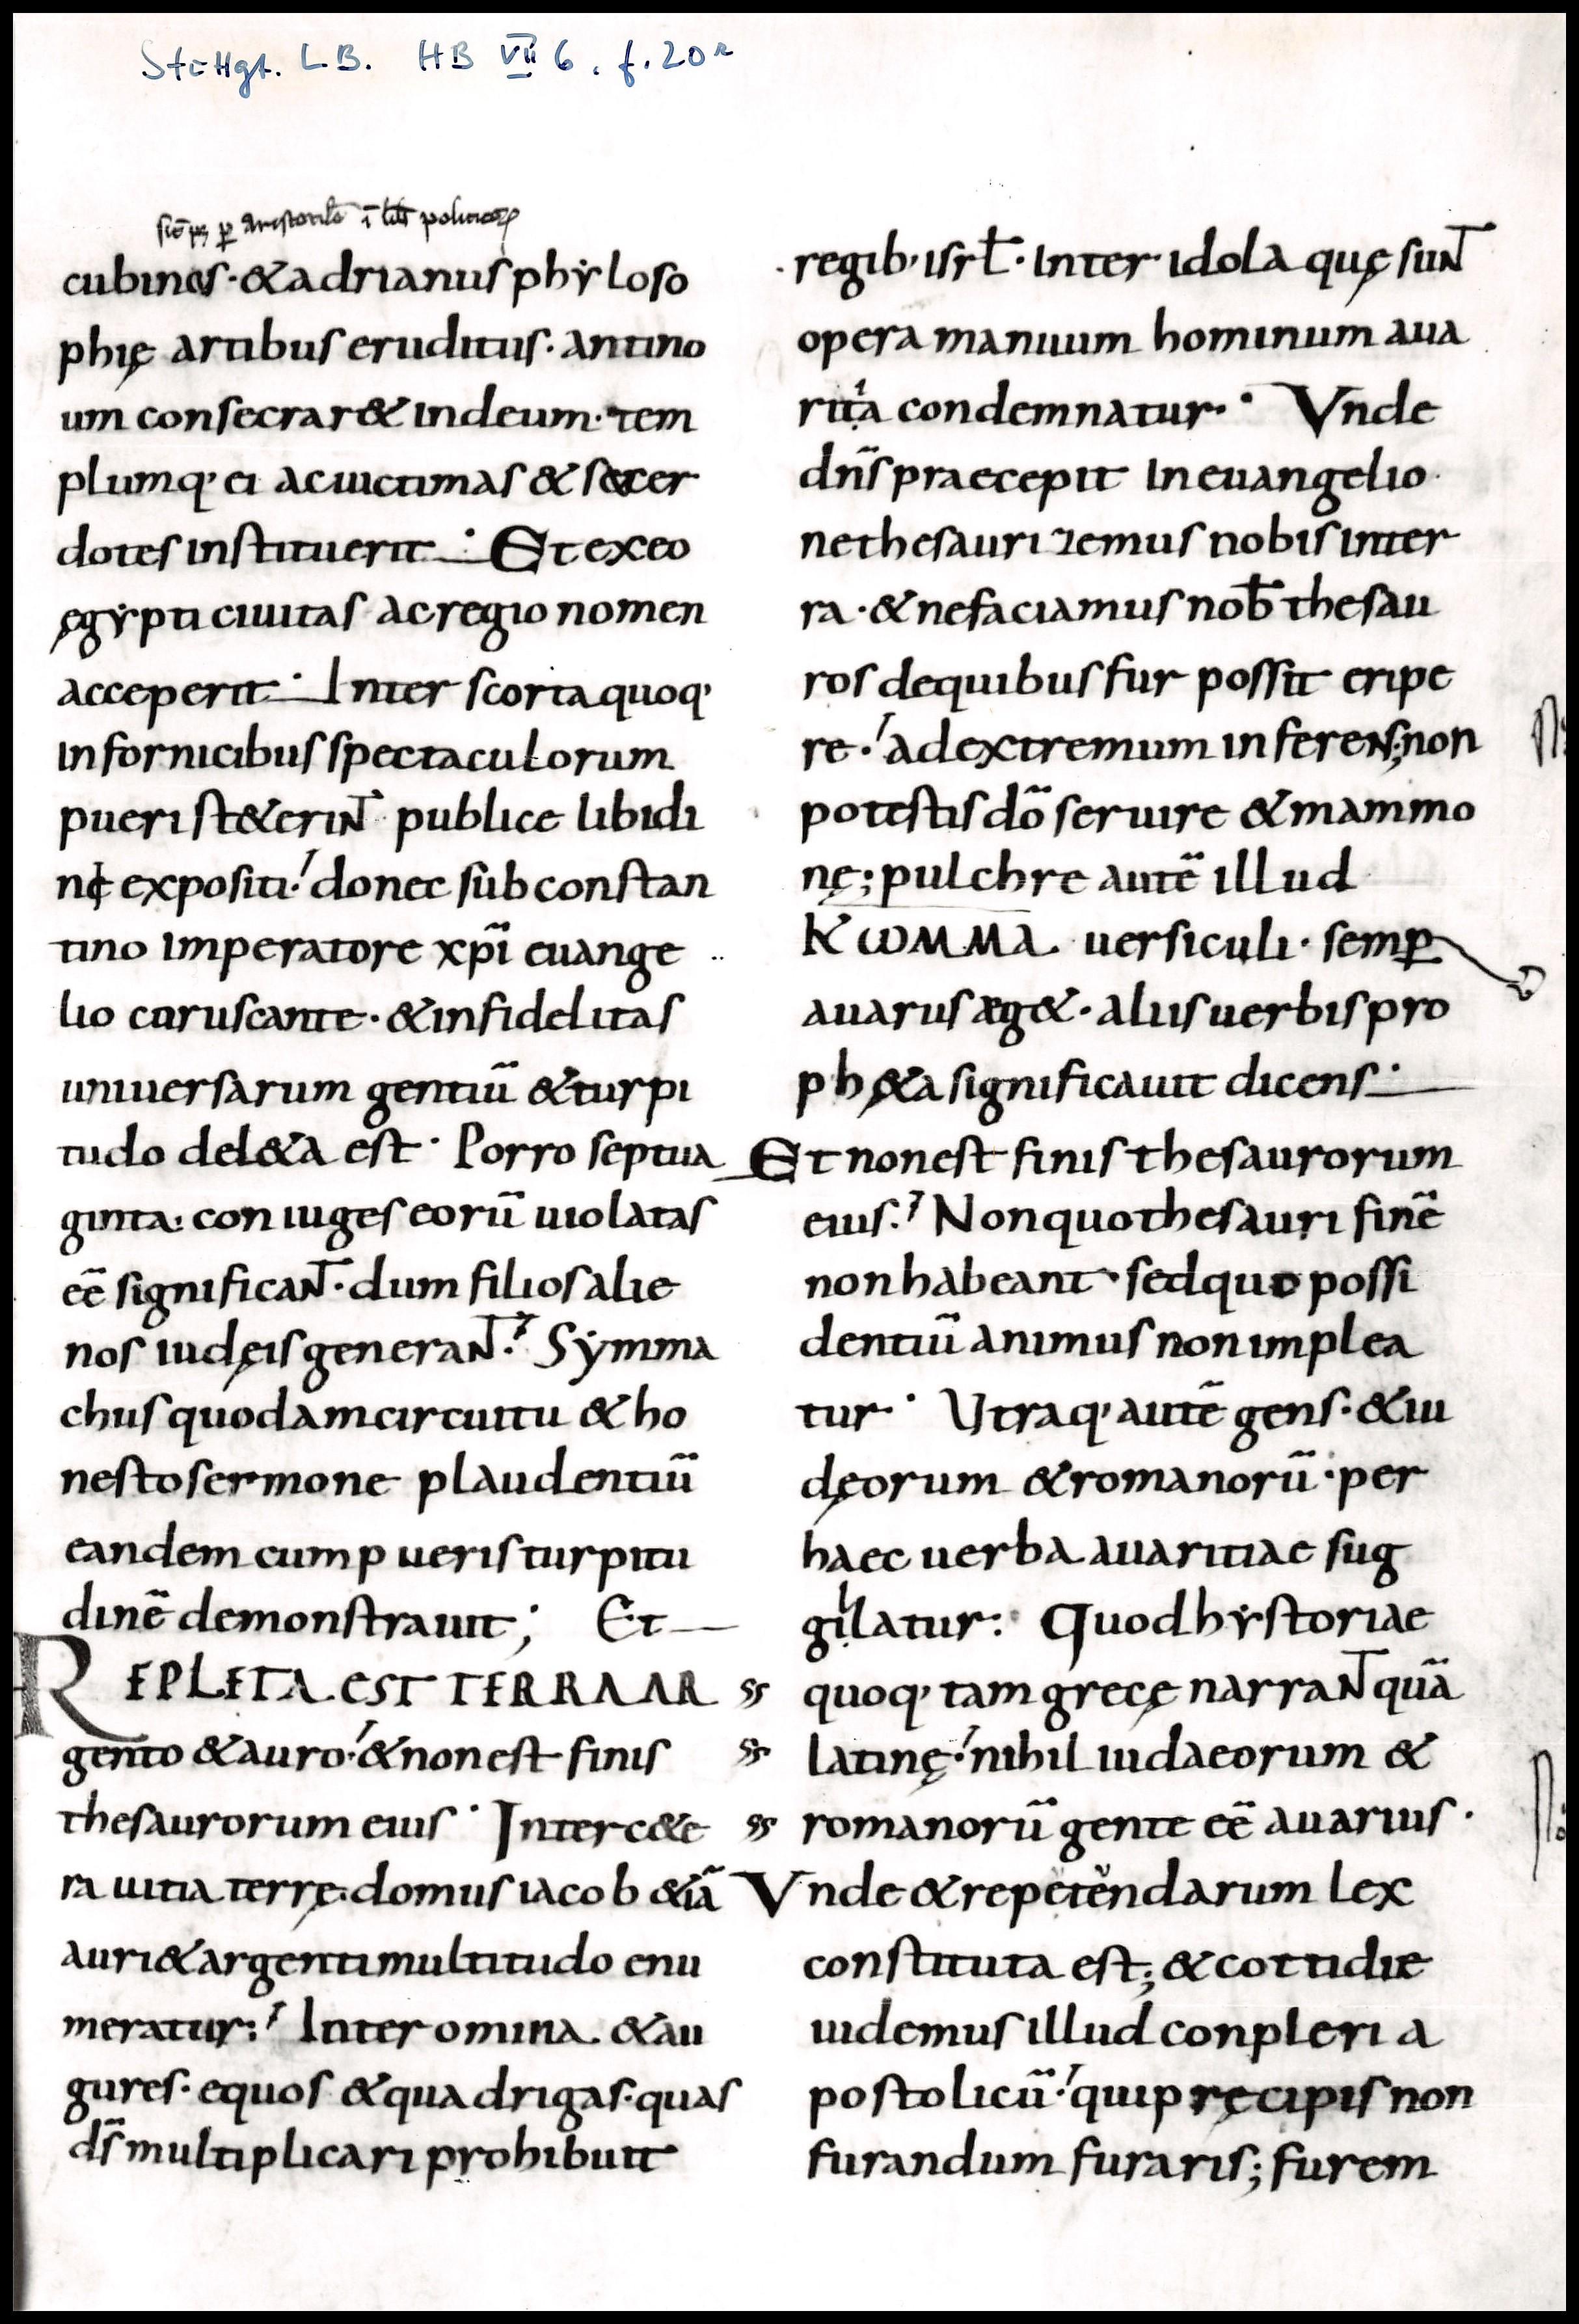 Stuttgt. L.B. HB VII 6. f. 20r
cubinos · & adrianus phẏloso
phię artibus eruditus · antino
um consecrar& in deum · tem
plumq· ei ac uictimas & sacer
dotes instituerit · Et exeo
ęgẏpti ciuitas ac regio nomen
acceperit · Inter scorta quoq·
in fornicibus spectaculorum
pueri st&erint publice libidi
nę expositi · donec sub constan
tino imperatore xp̄i euange
lio coruscante · & infidelitas
uniuersarum gentiū & turpi
tudo del&a est · Porro septua
ginta : coniuges eorū uiolatas
eē significant · dum filios alie
nos iudęis generant · Sẏmma
chus quodam circuitu & ho
nesto sermone plaudentiū
eandem cum pueris turpitu
dinē demonstrauit ; Et
REPLETA EST TERRA AR
gento & auro · & non est finis
thesaurorum eius · Inter c&e
ra uitia terrę · domus iacob &iā
auri & argenti multitudo enu
meratur : Inter omina & au
gures · equos & quadrigas · quas
d̄s multiplicari prohibuit
regib· isrł · Inter idola quę sunt
opera manuum hominum aua
ritia condemnatur · Vnde
dn̄s praecepit in euangelio
ne thesaurizemus nobis in ter
ra · & ne faciamus nob̄ thesau
ros de quibus fur possit eripe
re · ad extremum inferens ; non
potestis dō seruire & mammo
nę ; pulchre autē illud
KωMMA uersiculi · semꝑ
auarus æg& · aliis uerbis pro
ph&a significauit dicens ·
Et non est finis thesaurorum
eius · Non quo thesauri finē
non habeant · sed quo possi
dentiū animus non implea
tur · Vtraq· autē gens · & iu
dęorum & romanorū · per
haec uerba auaritiae sug
gilatur : Quod hẏstoriae
quoq· tam grecę narrant quā
latinę · nihil iudaeorum &
romanorū gente eē auarius ·
Vnde & repetendarum lex
constituta est ; & cottidie
uidemus illud conpleri a
postolicū · qui pręcipis non
furandum furaris ; furem